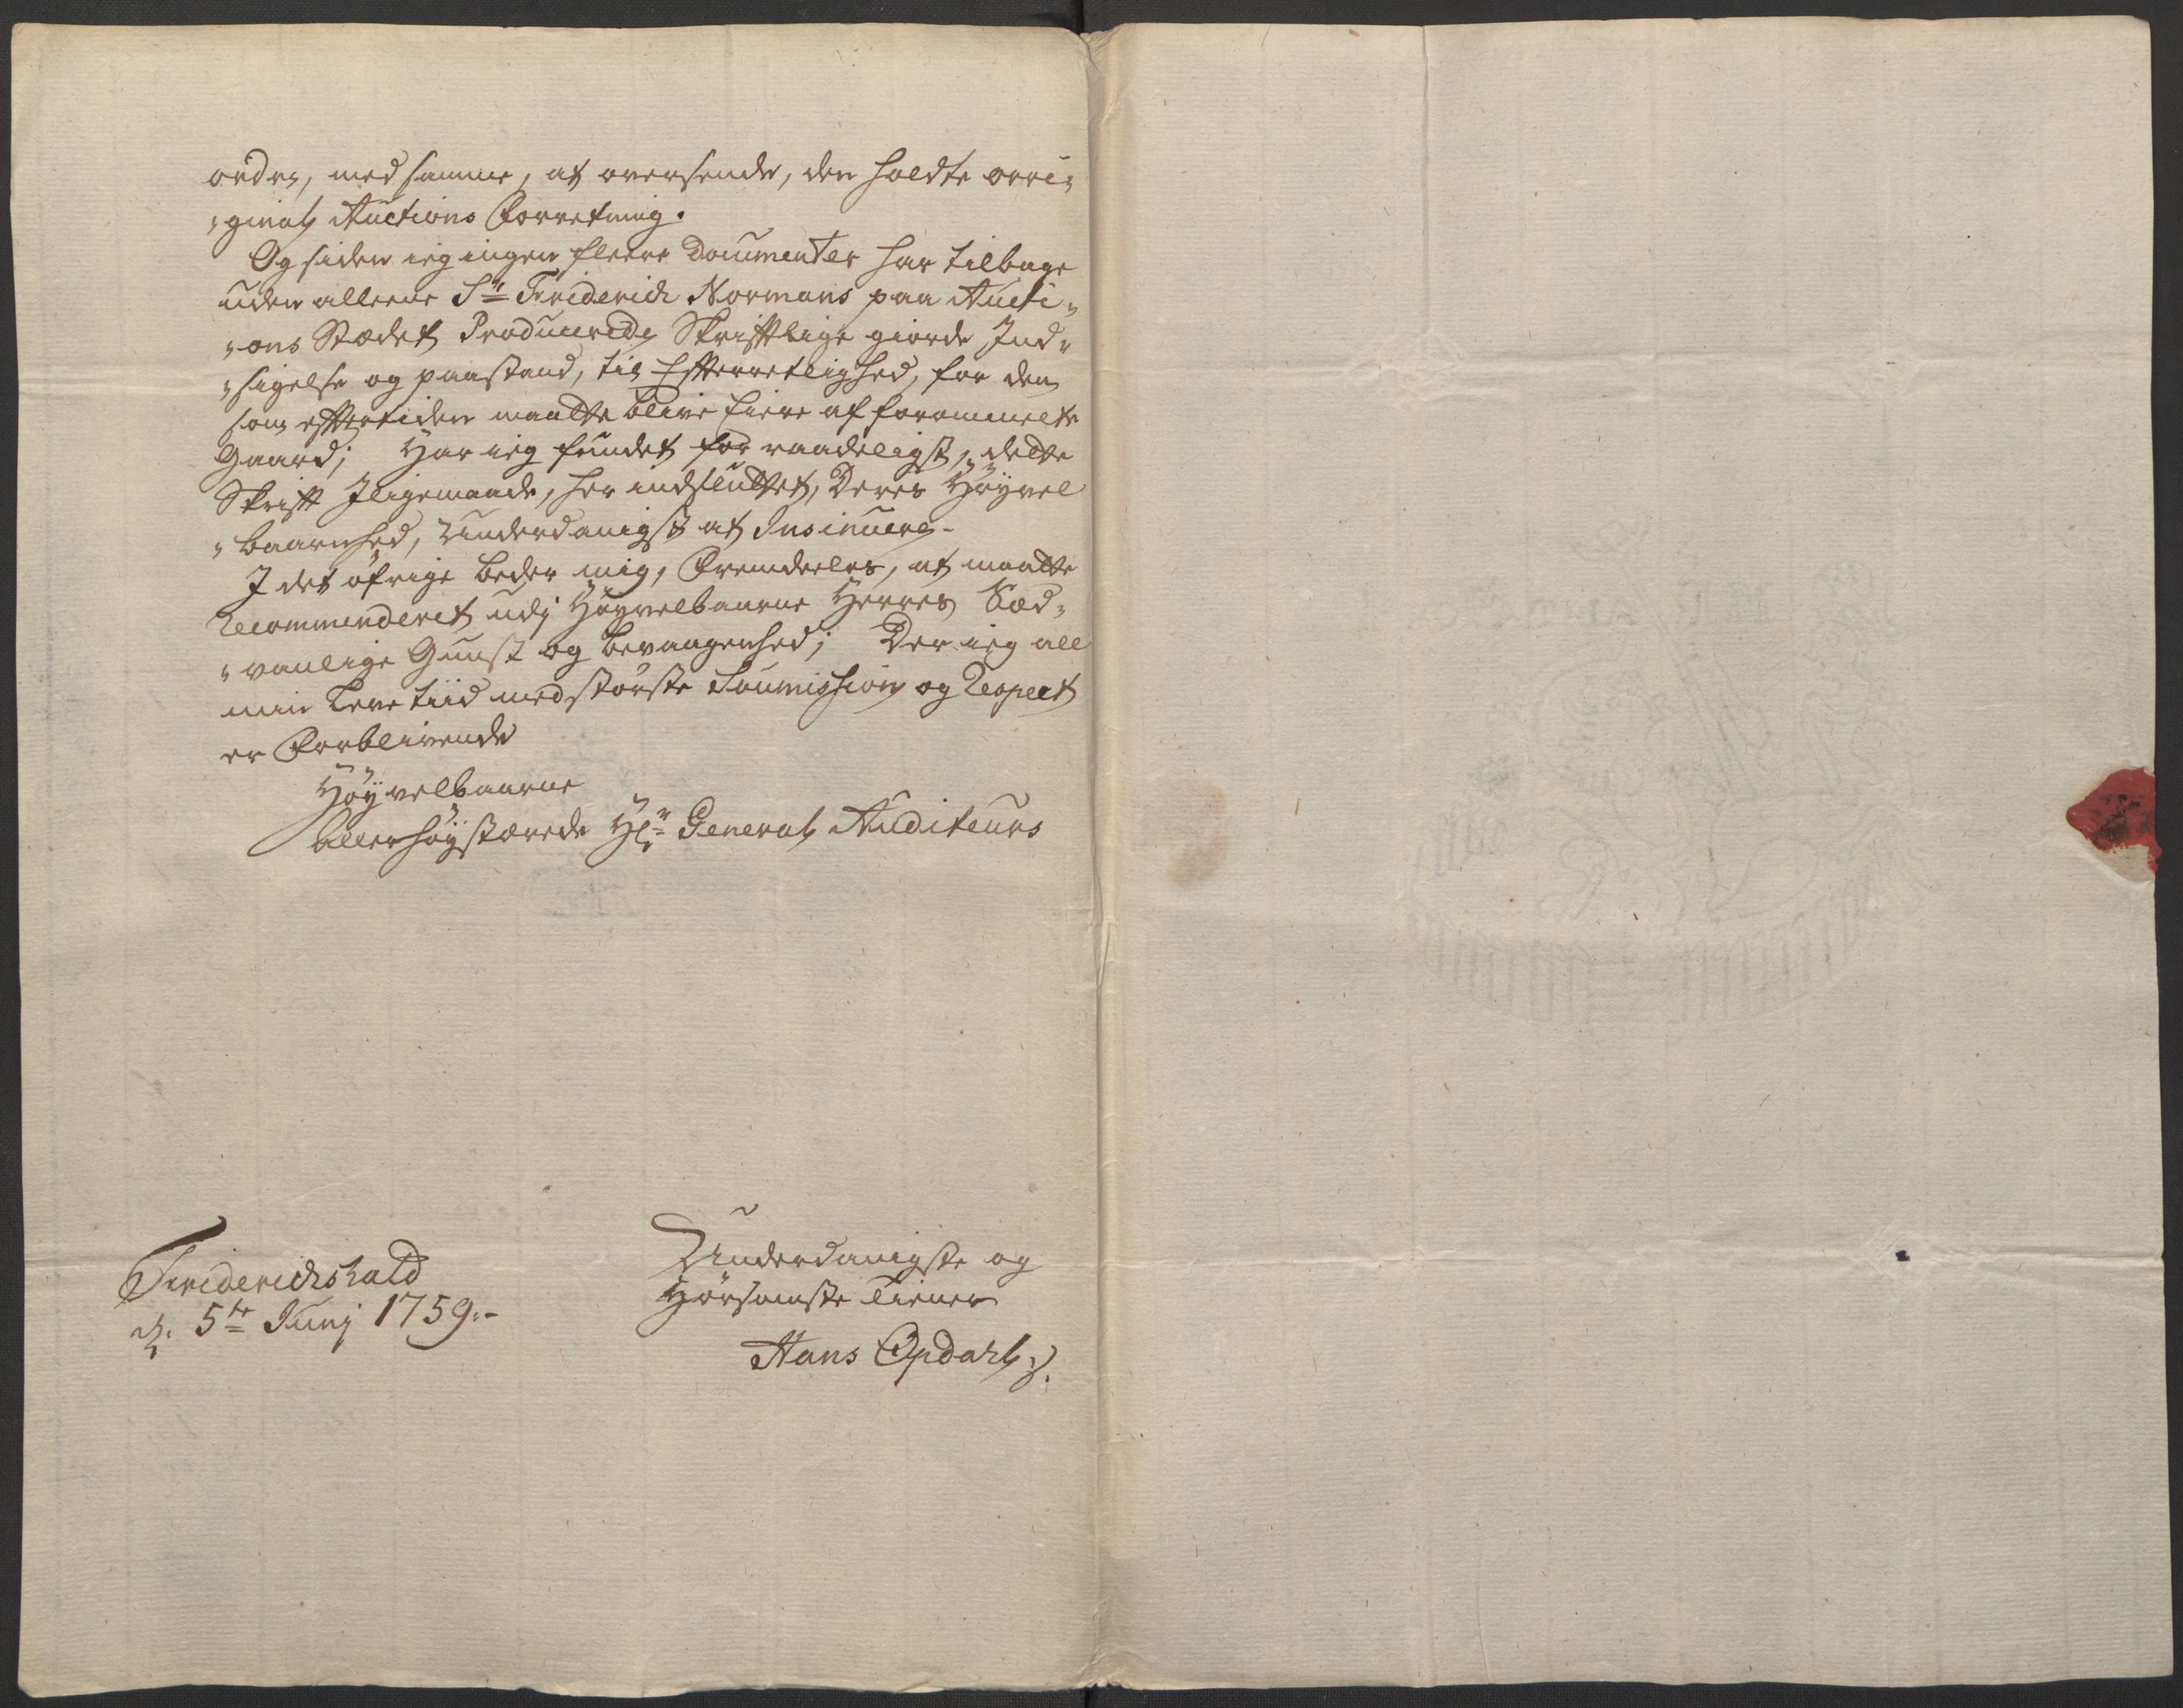 ordre, med samme, at oversende, den holdte orri„
„ginal Auctions Forretning.
Og siden ieg ingen fleere Documenter har tilbage
uden alleene Sr Friderich Normans paa Aucti„
„ons Stædet Producerede Skrifftlige giorde Ind„
„sigelse og paastand, til Efterretlighed, for den
som effterdiden maatte blive Eiere af forommelte
Gaard; Har ieg fundet for raadeligst, dette
Skrifft Jligemaade, her indsluttet, Deres Höyvel
„baarenhed, Underdanigst at Insinuere.
I det öfrige beder mig, Fremdeeles, at maatte
Recommenderet udj Höyvelbaarne Herres Sæd„
„vanlige Gunst og bevaagenhed; Der ieg all
min Leve tiid med störste Soumission og Respect
er Forblivende
Höyvelbaarne
Allerhöystærede Hr General Auditeurs
Friderichshald
d. 5te Junj 1759.-
Underdanigste og
Hörsomste tiener
Hans Opdahl